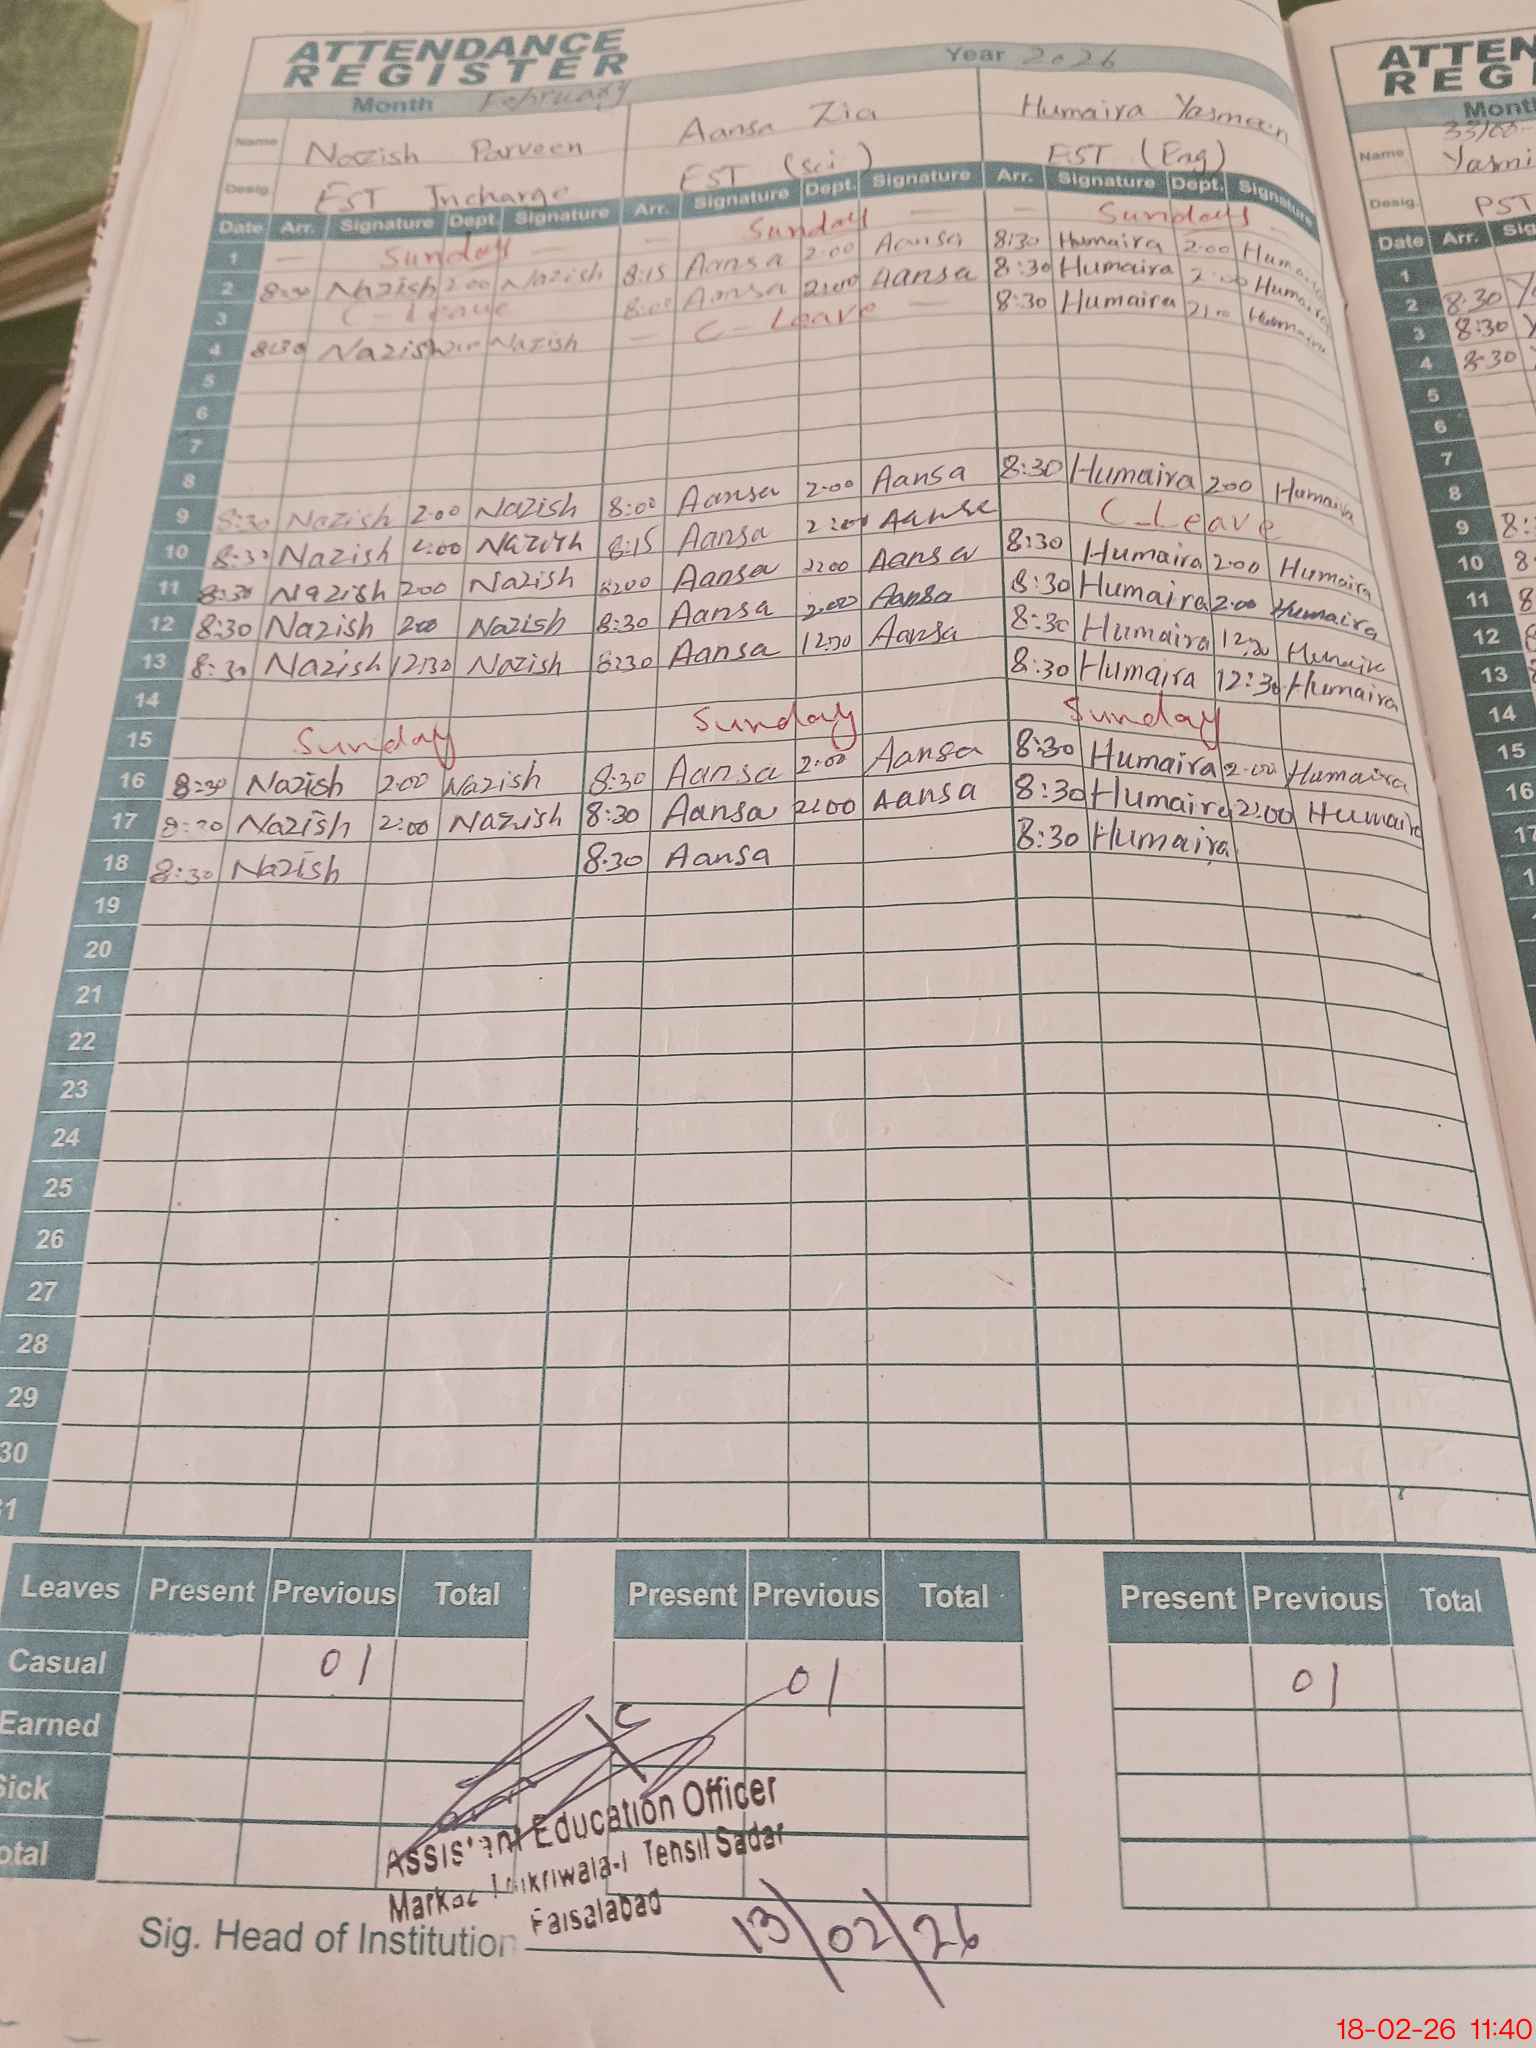 ATTENDANCE REGISTER
Year 2026
Month February
Name Nazish Parveen Aansa Zia Humaira Yasmeen
Desig. EST Incharge EST (Sci) EST (Eng)
Date Arr. Signature Dept. Signature Arr. Signature Dept. Signature Arr. Signature Dept. Signature
1 — Sunday — — Sunday — — Sundays —
2 8:30 Nazish 2:00 Nazish 8:15 Aansa 2:00 Aansa 8:30 Humaira 2:00
3 C - Leave 8:00 Aansa 2:00 Aansa 8:30 Humaira 2:00
4 8:30 Nazish Nazish — C - Leave — 8:30 Humaira 2:00 Humaira
5
6
7
8
9 8:30 Nazish 2:00 Nazish 8:00 Aansa 2:00 Aansa 8:30 Humaira 2:00 Humaira
10 8:30 Nazish 2:00 Nazish 8:15 Aansa 2:00 Aansa C - Leave
11 8:30 Nazish 2:00 Nazish 8:00 Aansa 2:00 Aansa 8:30 Humaira 2:00 Humaira
12 8:30 Nazish 2:00 Nazish 8:30 Aansa 2:00 Aansa 8:30 Humaira 2:00 Humaira
13 8:30 Nazish 12:30 Nazish 8:30 Aansa 12:30 Aansa 8:30 Humaira 12:30
14 8:30 Humaira 12:30 Humaira
15 Sunday Sunday Sunday
16 8:30 Nazish 2:00 Nazish 8:30 Aansa 2:00 Aansa 8:30 Humaira 2:00 Humaira
17 8:30 Nazish 2:00 Nazish 8:30 Aansa 2:00 Aansa 8:30 Humaira 2:00 Humaira
18 8:30 Nazish 8:30 Aansa 8:30 Humaira
19
20
21
22
23
24
25
26
27
28
29
30
31
Leaves Present Previous Total Present Previous Total Present Previous Total
Casual 01 01 01
Earned
Sick
Total
Assistant Education Officer
Tehsil Sadar
Faisalabad
Sig. Head of Institution 13/02/26
ATTEN
REGI
Month
Name Yasmi
Desig. PST
Date Arr. Sig
1
2 8:30
3 8:30
4 8:30
5
6
7
8
9 8:
10 8
11 8
12
13
14
15
16
17
18-02-26 11:40